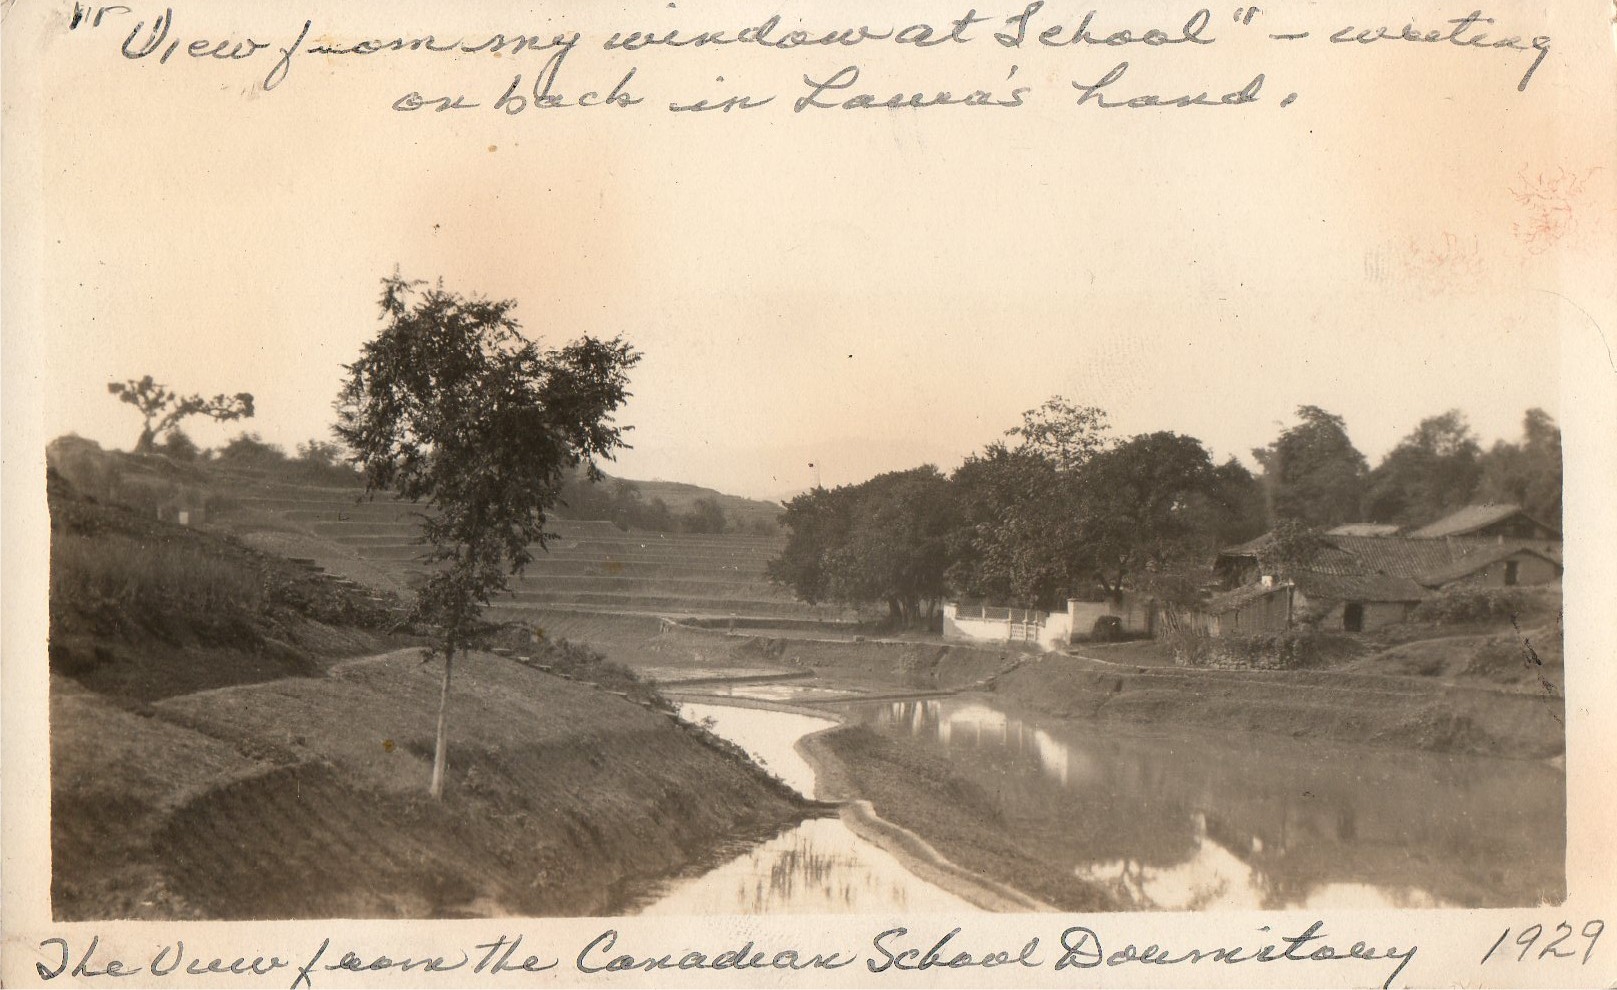 "View from my window at School" - writing
on back in Laura's hand.
The View from the Canadian School Dormitory 1929